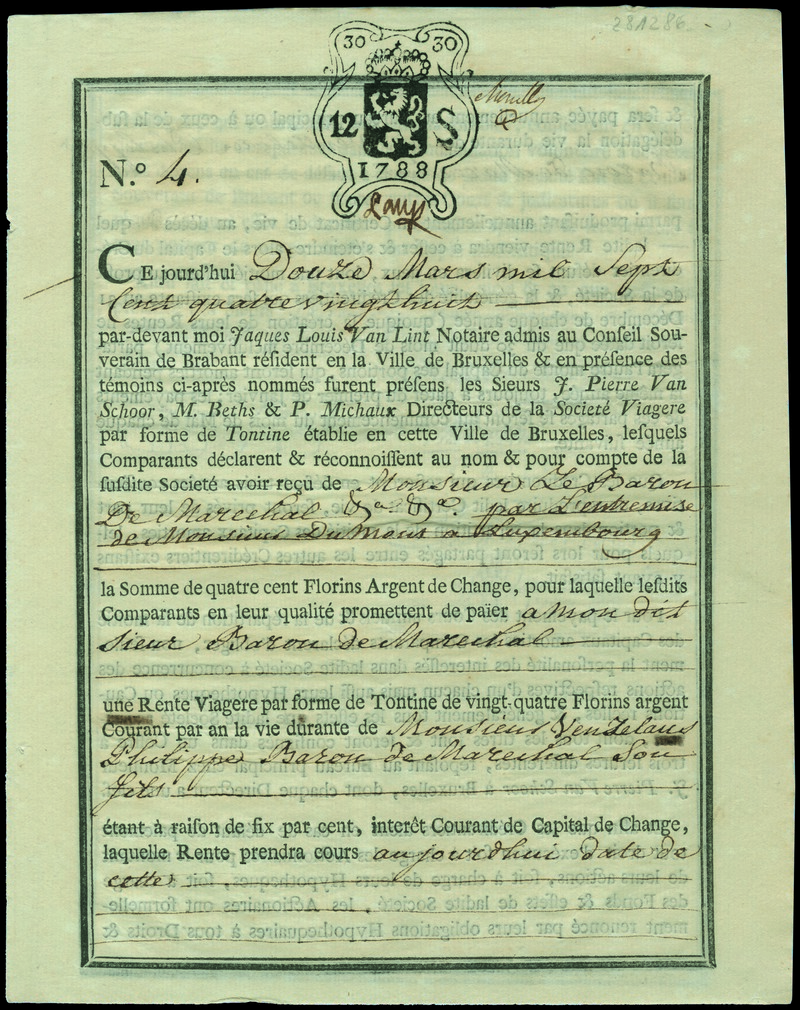 281286
30 30
12 S
1788
N.º 4.
CE jourd'hui Douze Mars mil Sept
Cent quatrevingthuit
par-devant moi Jaques Louis Van Lint Notaire admis au Conſeil Sou-
verain de Brabant réſident en la Ville de Bruxelles & en préſence des
témoins ci-après nommés furent préſens les Sieurs J. Pierre Van
Schoor, M. Beths & P. Michaux Directeurs de la Societé Viagere
par forme de Tontine établie en cette Ville de Bruxelles, leſquels
Comparants déclarent & réconnoiſſent au nom & pour compte de la
ſuſdite Societé avoir reçu de Monsieur Le Baron
De Marechal &a. &a. par L'entremise
de Monsieur Dumont a Luxembourg
la Somme de quatre cent Florins Argent de Change, pour laquelle leſdits
Comparants en leur qualité promettent de païer a mon dit
sieur Baron de Marechal
une Rente Viagere par forme de Tontine de vingt-quatre Florins argent
Courant par an la vie dùrante de Monsieur Venzelaus
Philippe Baron de Marechal Son
fils
étant à raiſon de ſix par cent, interêt Courant de Capital de Change,
laquelle Rente prendra cours aujourdhui date de
cette